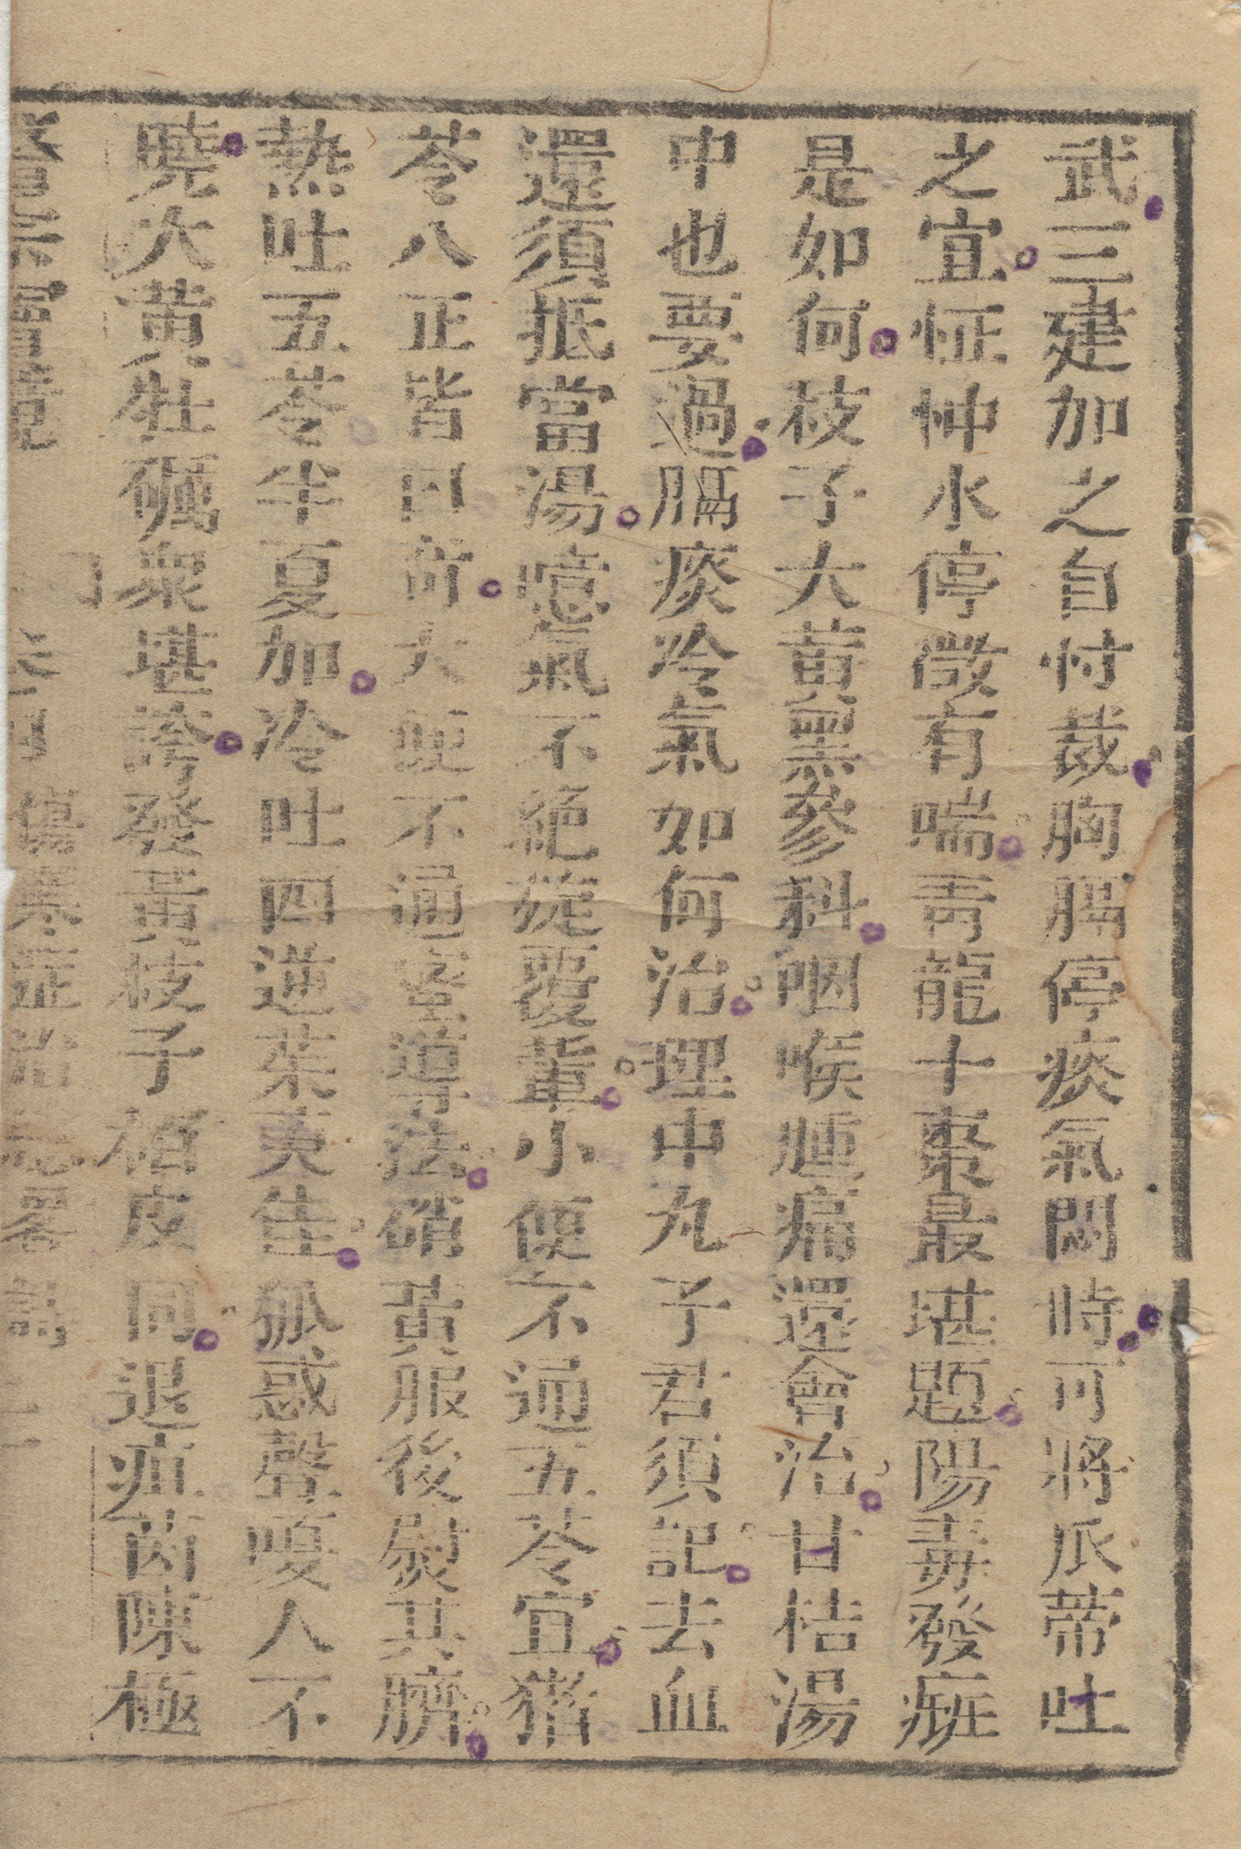 武三建加之自忖裁胸膈停痰氣悶時可將瓜蒂吐
之宜怔忡水停微有喘青龍十棗最堪題陽毒發癍
是如何枝子大黄黑參科咽喉腫痛還會治甘桔湯
中也要過膈痰冷氣如何治理中丸子君須記去血
還須抵當湯噫氣不絶旋覆輩小便不通五苓宜猪
苓八正皆曰奇大便不通蜜導法硝黃服後熨其臍
熱吐五苓半夏加冷吐四逆茱萸佳狐惑聲嗄人不
曉大黄牡礪衆堪誇發黃枝子栢皮同退疸茵陳極
傷寒症治總畧